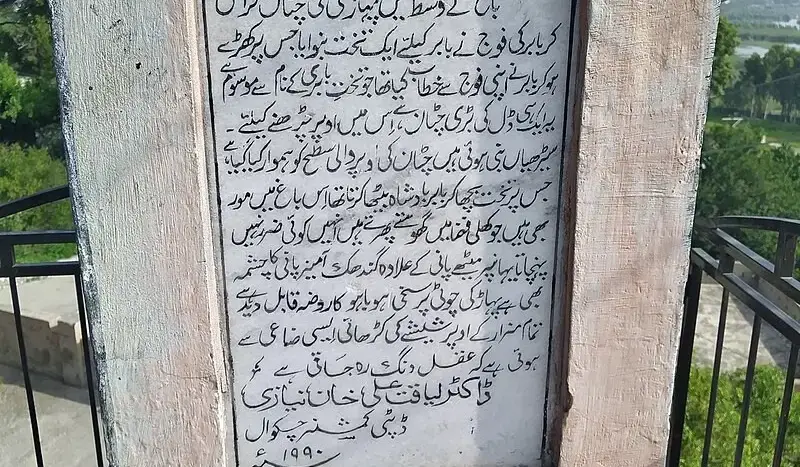 باغ کے وسط میں پہاڑی کی چٹان تراش
کر بابر کی فوج نے بابر کیلئے ایک تخت بنوایا جس پر کھڑے
ہو کر بابر نے اپنی فوج سے خطاب کیا تھا جو تخت بابری کے نام سے موسوم ہے
یہ ایک ہی ڈل کی بڑی چٹان ہے، اس میں اوپر چڑھنے کیلئے۔
سیڑھیاں بنی ہوئی ہیں چٹان کی اوپر والی سطح کو ہموار کیا گیا ہے
جس پر تخت بچھا کر بابر بادشاہ بیٹھا کرتا تھا اس باغ میں مور
بھی ہیں جو کھلی فضا میں گھومتے پھرتے ہیں انہیں کوئی ضرر نہیں
پہنچاتا یہاں میٹھے پانی کے علاوہ گندھک آمیز پانی کا چشمہ
بھی ہے پہاڑ کی چوٹی پر سخی ہو باہو کا روضہ قابل دید ہے
تمام مزار کے اوپر شیشے کی کڑھائی ایسی صناعی سے
ہوئی ہے کہ عقل دنگ رہ جاتی ہے
ڈاکٹر لیاقت علی خان نیازی
ڈپٹی کمشنر چکوال
۱۹۹۰ء